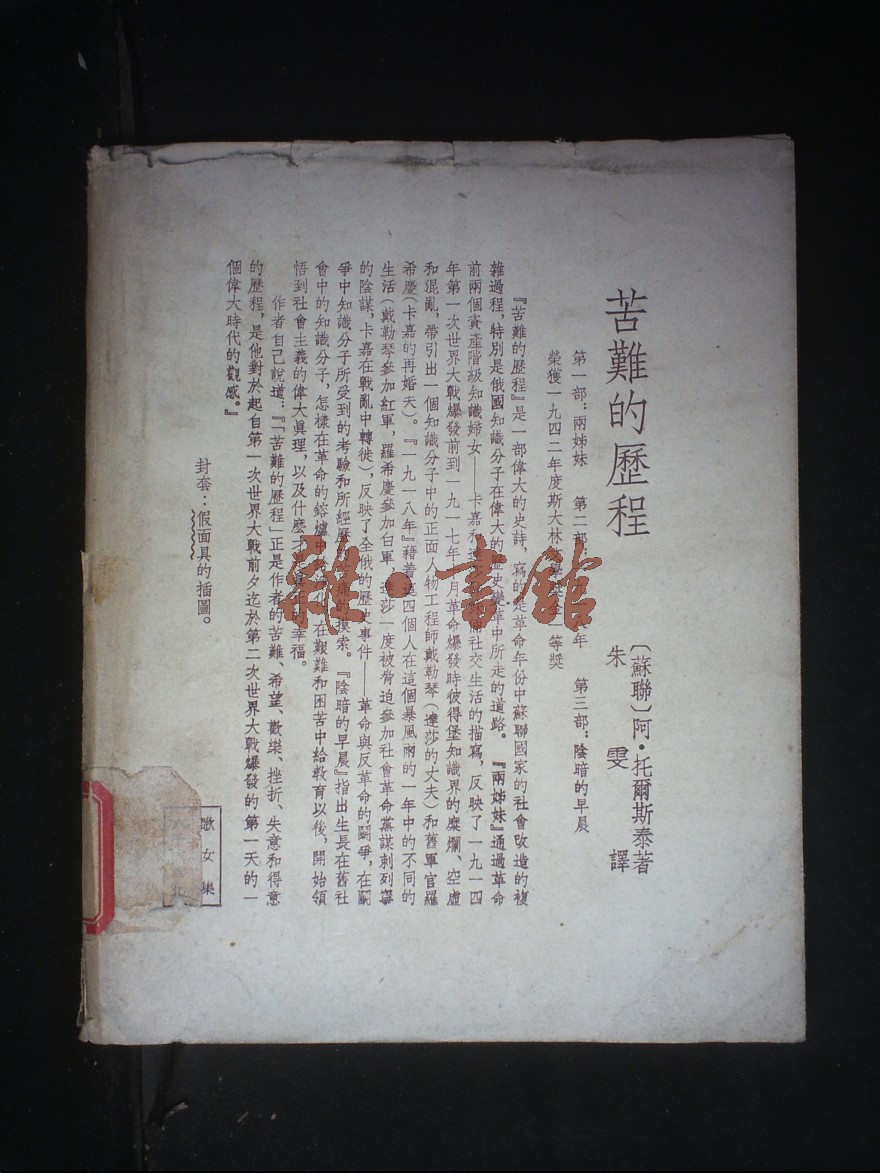 苦難的歷程
〔蘇聯〕阿·托爾斯泰著
朱雯譯
第一部：兩姊妹 第二部 八年 第三部：陰暗的早晨
榮獲一九四二年度斯大林 一等獎
『苦難的歷程』是一部偉大的史詩，寫的是革命年份中蘇聯國家的社會改造的複
雜過程，特別是俄國知識分子在偉大的歷史變革中所走的道路。『兩姊妹』通過革命
前兩個資產階級知識婦女——卡嘉和達 社交生活的描寫，反映了一九一四
年第一次世界大戰爆發前到一九一七年十月革命爆發時彼得堡知識界的糜爛、空虛
和混亂，帶引出一個知識分子中的正面人物工程師戴勒琴（達莎的丈夫）和舊軍官羅
希慶（卡嘉的再婚夫）。『一九一八年』藉着這四個人在這個暴風雨的一年中的不同的
生活（戴勒琴參加紅軍，羅希慶參加白軍，達莎一度被脅迫參加社會革命黨謀刺列寧
的陰謀，卡嘉在戰亂中轉徙），反映了全俄的歷史事件——革命與反革命的鬭爭，在鬭
爭中知識分子所受到的考驗和所經歷 痛的摸索。『陰暗的早晨』指出生長在舊社
會中的知識分子，怎樣在革命的鎔爐中 化，在艱難和困苦中給教育以後，開始領
悟到社會主義的偉大眞理，以及什麼才 的幸福。
作者自己說道：『「苦難的歷程」正是作者的苦難、希望、歡樂、挫折、失意和得意
的歷程，是他對於起自第一次世界大戰前夕迄於第二次世界大戰爆發的第一天的一
個偉大時代的觀感。』
封套：假面具的插圖。
雜·書館
歌女集